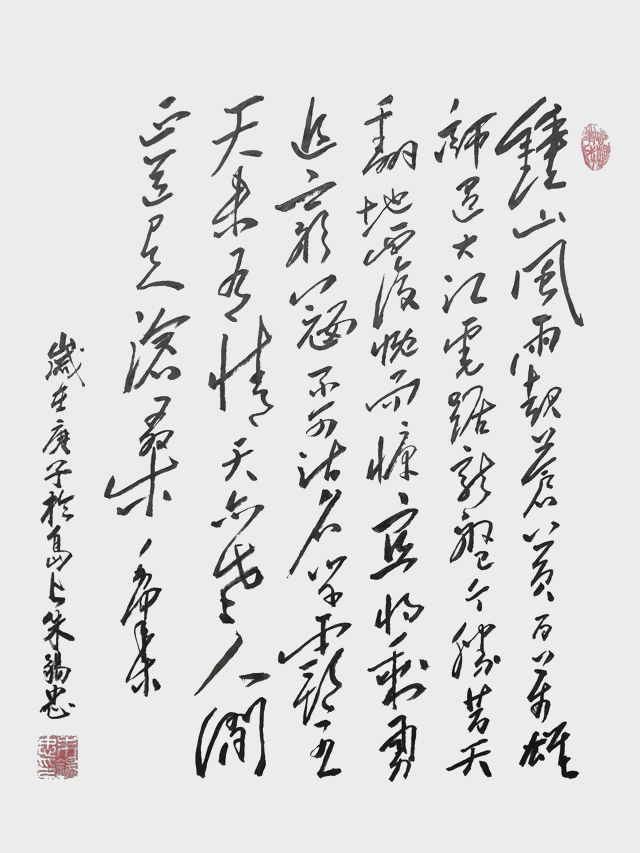 鍾山風雨起蒼黃百萬雄
師過大江虎踞龍盤今勝昔天
翻地覆慨而慷宜將剩勇
追窮寇不可沽名學霸王
天若有情天亦老人間
正道是滄桑
歲在庚子於島上朱錫忠